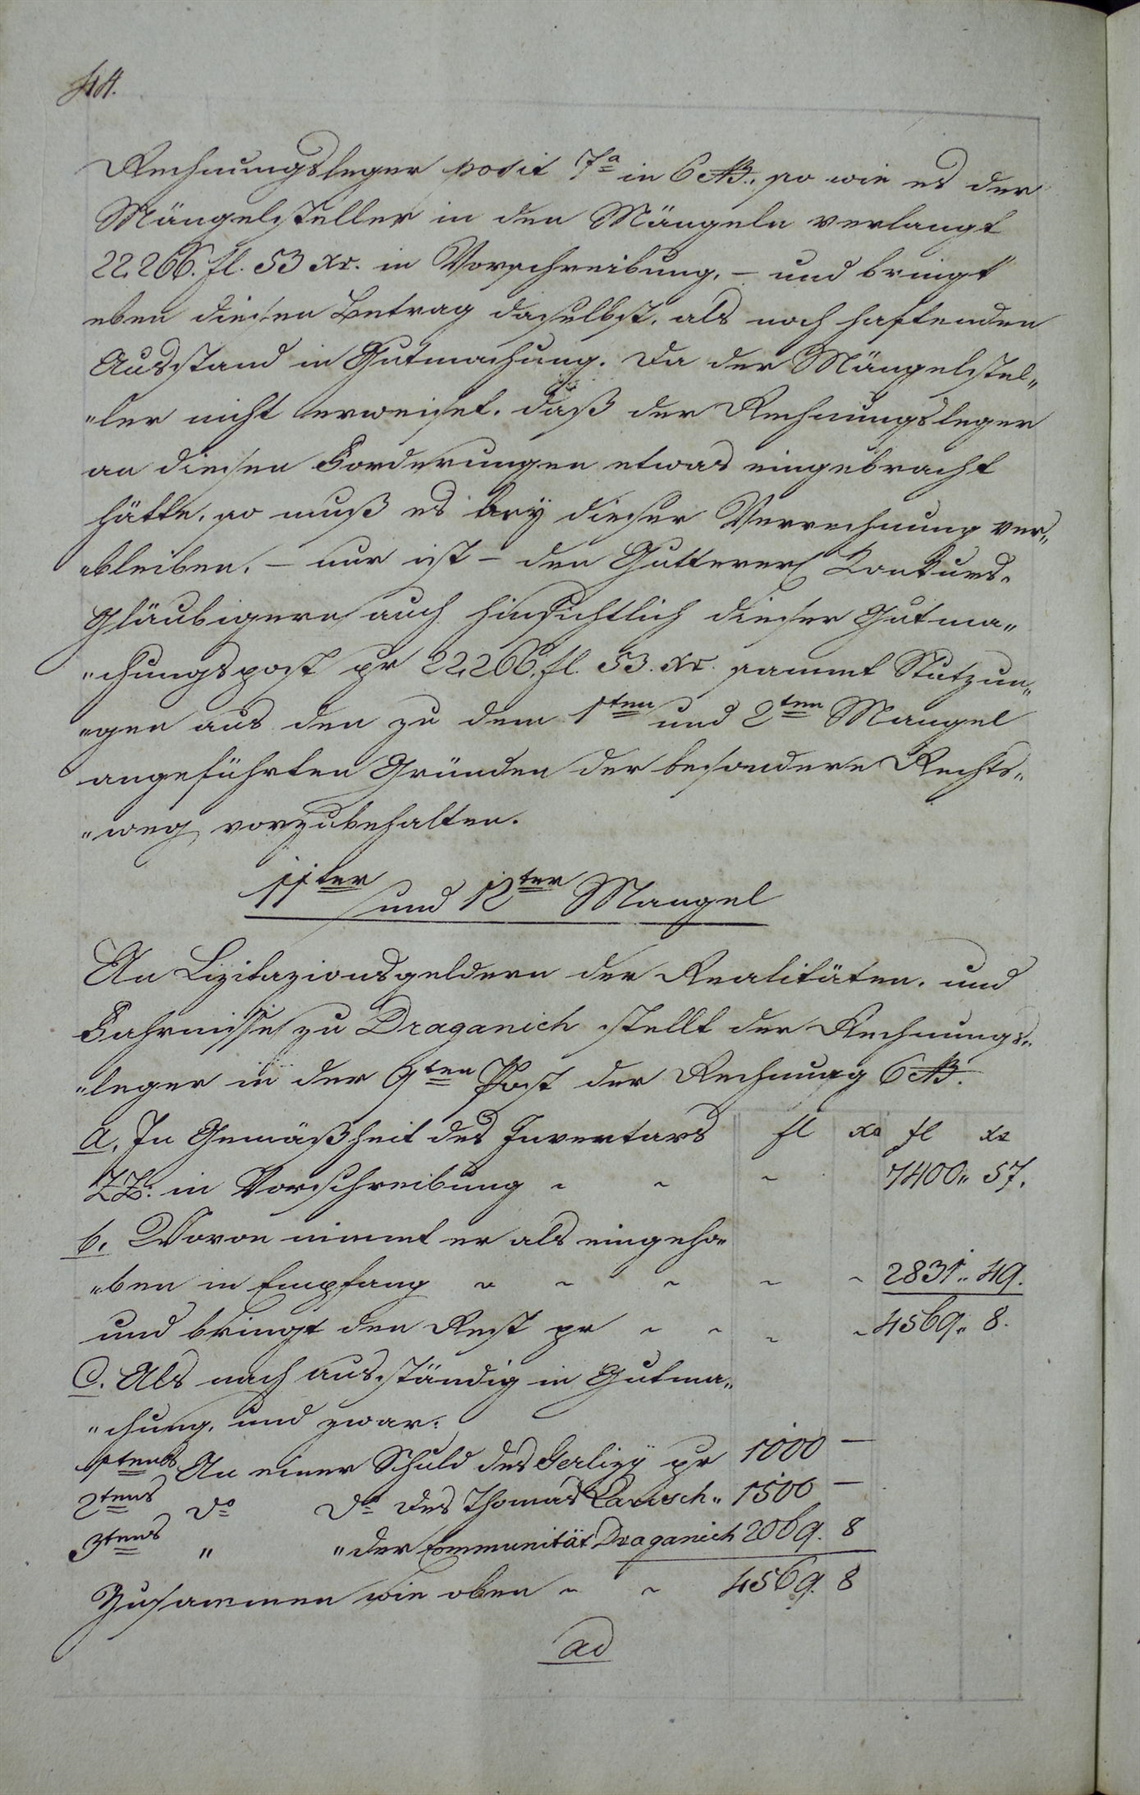 44.
Rechnungsleger posit 7ª in 6 AB., so wie es der
Mängelsteller in den Mängeln verlangt
22.266. fl. 53 xr. in Vorschreibung, – und bringt
eben diesen Betrag daselbst, als noch haftenden
Ausstand in Gutmachung. Da der Mängelstel„
„ler nicht erweiset, daß der Rechnungsleger
an diesen Forderungen etwas eingebracht
hätte, so muß es bey dieser Verrechnung ver„
„bleiben, – nur ist – den Gutterer Konkurs„
Gläubigern auch hinsichtlich dieser Gutma„
„chungspost pr 22.266. fl. 53. xr. sammt Nutzun„
„gen aus den zu dem 1ten und 2ten Mangel
angeführten Gründen der besondere Rechts„
„weg vorzubehalten.
11ter und 12ter Mangel
An Lizitazionsgeldern der Realitäten, und
Fahrnisse zu Draganich stellt der Rechnungs„
„leger in der 9ten Post der Rechnung 6 AB.
a. In Gemäßheit des Inventars fl xr fl xr
ZZ. in Vorschreibung „ „ „ 7400„ 57.
b. Wovon nimmt er als eingeho„
„ben in Empfang „ „ „ „ „ 2831„ 49.
und bringt den Rest pr „ „ „ „ 4569„ 8.
C. Als noch ausständig in Gutma„
„chung, und zwar:
1tens An einer Schuld des Gerlizÿ pr 1000 –
2tens do do des Thomas „ 1500 –
3tens „ „ der Communität Draganich 2069. 8
Zusammen wie oben „ „ 4569. 8
ad